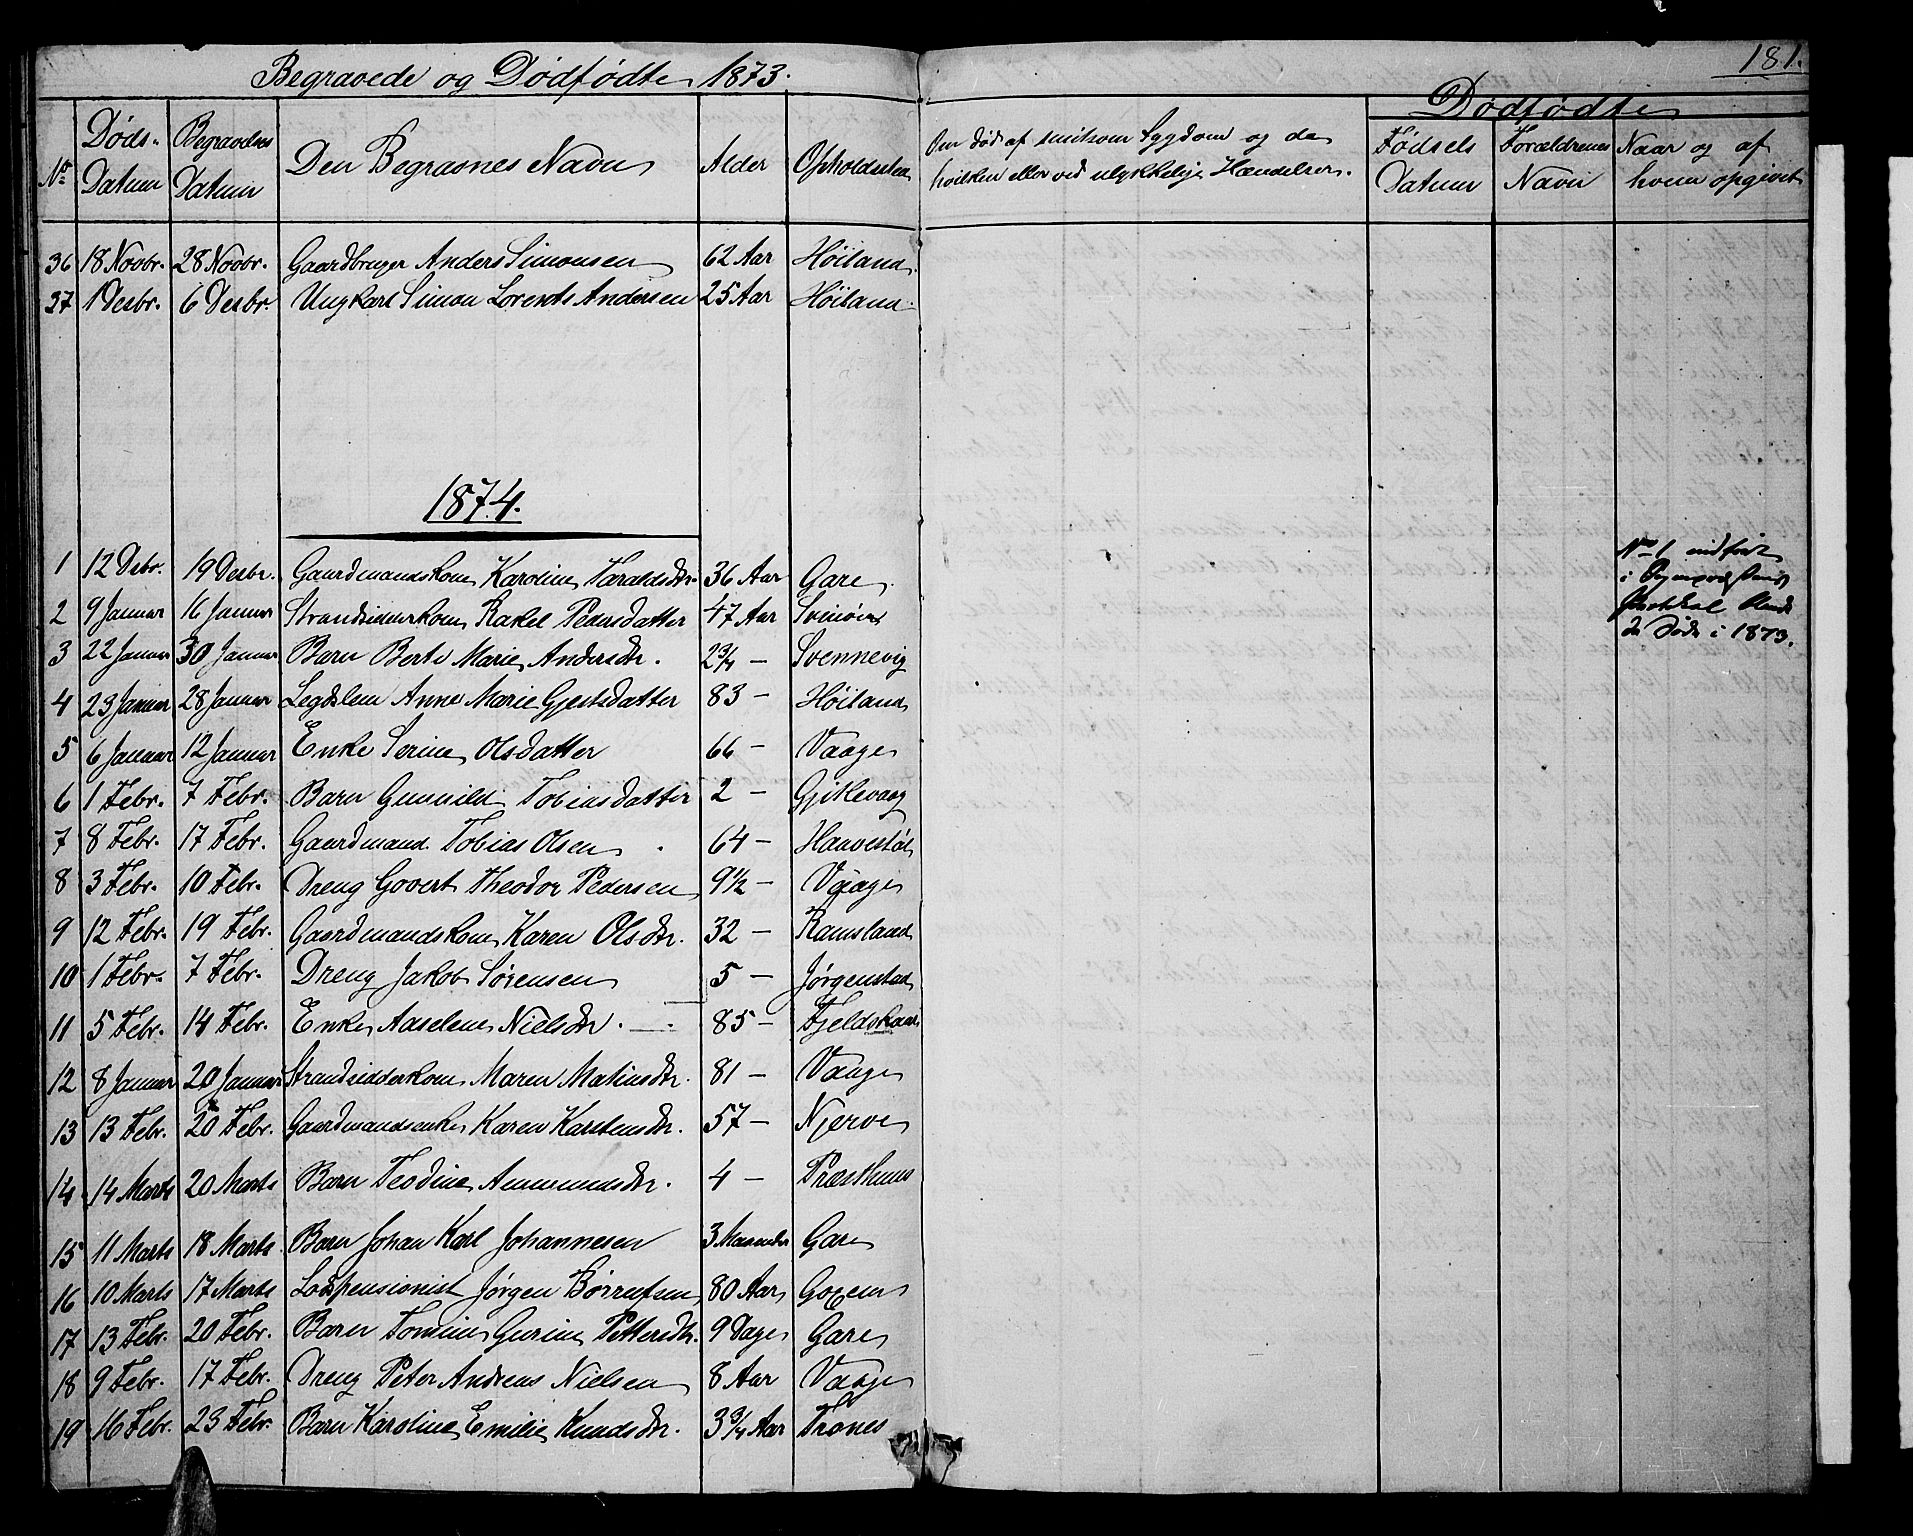 Begravede og Dødfødte 1873.
181.
Dødfødte
No Døds-Datum Begravelses Datum Den Begravnes Navn Alder Opholdssted Om død af smitsom Sygdom og da hvilken eller ved ulykkelige Hændelser. Fødsels Datum Forældrenes Navn Naar og af hvem opgivet
36 18 Novbr. 28 Novbr. Gaardbruger Anders Simonsen 62 Aar Høiland
37 1 Desbr. 6 Desbr. Ungkarl Simon Lorents Andersen 25 Aar Høiland
1874.
1 12 Debr. 19 Desbr. Gaardmandskone Karoline Haraldsdtr. 36 Aar Gare
No 1 indført
i
Protokol
Døde i 1873.
2 9 Januar 16 Januar Strandsidderkone Rakel Pedersdatter 47 Aar Svinøer
3 22 Januar 30 Januar Barn Berte Marie Andersdtr. 2 3/4 — Svennevig
4 23 Januar 28 Januar Legdslem Anne Marie Gjertsdatter 83 — Høiland
5 6 Januar 12 Januar Enke Serine Olsdatter 66 — Vaage
6 1 Febr. 7 Febr. Barn Gunnild Tobiasdatter 2 — Gjikevaag
7 8 Febr. 17 Febr. Gaardmand Tobias Olsen 64 — Haavestøl
8 3 Febr. 10 Febr. Dreng Govert Theodor Pedersen 9 1/2 — Vaage
9 12 Febr. 19 Febr. Gaardmandskone Karen Olsdtr. 32 — Ramsland
10 1 Febr. 7 Febr. Dreng Jakob Sørensen 5 — Jørgenstad
11 5 Febr. 14 Febr. Enke Aaselene Nielsdtr. 85 — Fjeldskaar
12 8 Januar 20 Januar Strandsidderkone Maren Matiasdtr. 81 — Vaage
13 13 Febr. 20 Febr. Gaardmandsenke Karen Karstensdtr. 57 — Njerve
14 14 Marts 20 Marts Barn Teodine Aanensdtr. 4 — Præsthuus
15 11 Marts 18 Marts Barn Johan Karl Johannesen 3 Maaneder Gare
16 10 Marts 17 Marts Lodspensionist Jørgen Børrufsen 80 Aar
17 13 Febr. 20 Febr. Barn Tomine Gurine Pettersdtr. 9 Dage Gare
18 9 Febr. 17 Febr. Dreng Peter Andreas Nielsen 8 Aar Vaage
19 16 Febr. 23 Febr. Barn Karoline Emilie Knudsdtr. 3 3/4 Aar Trones